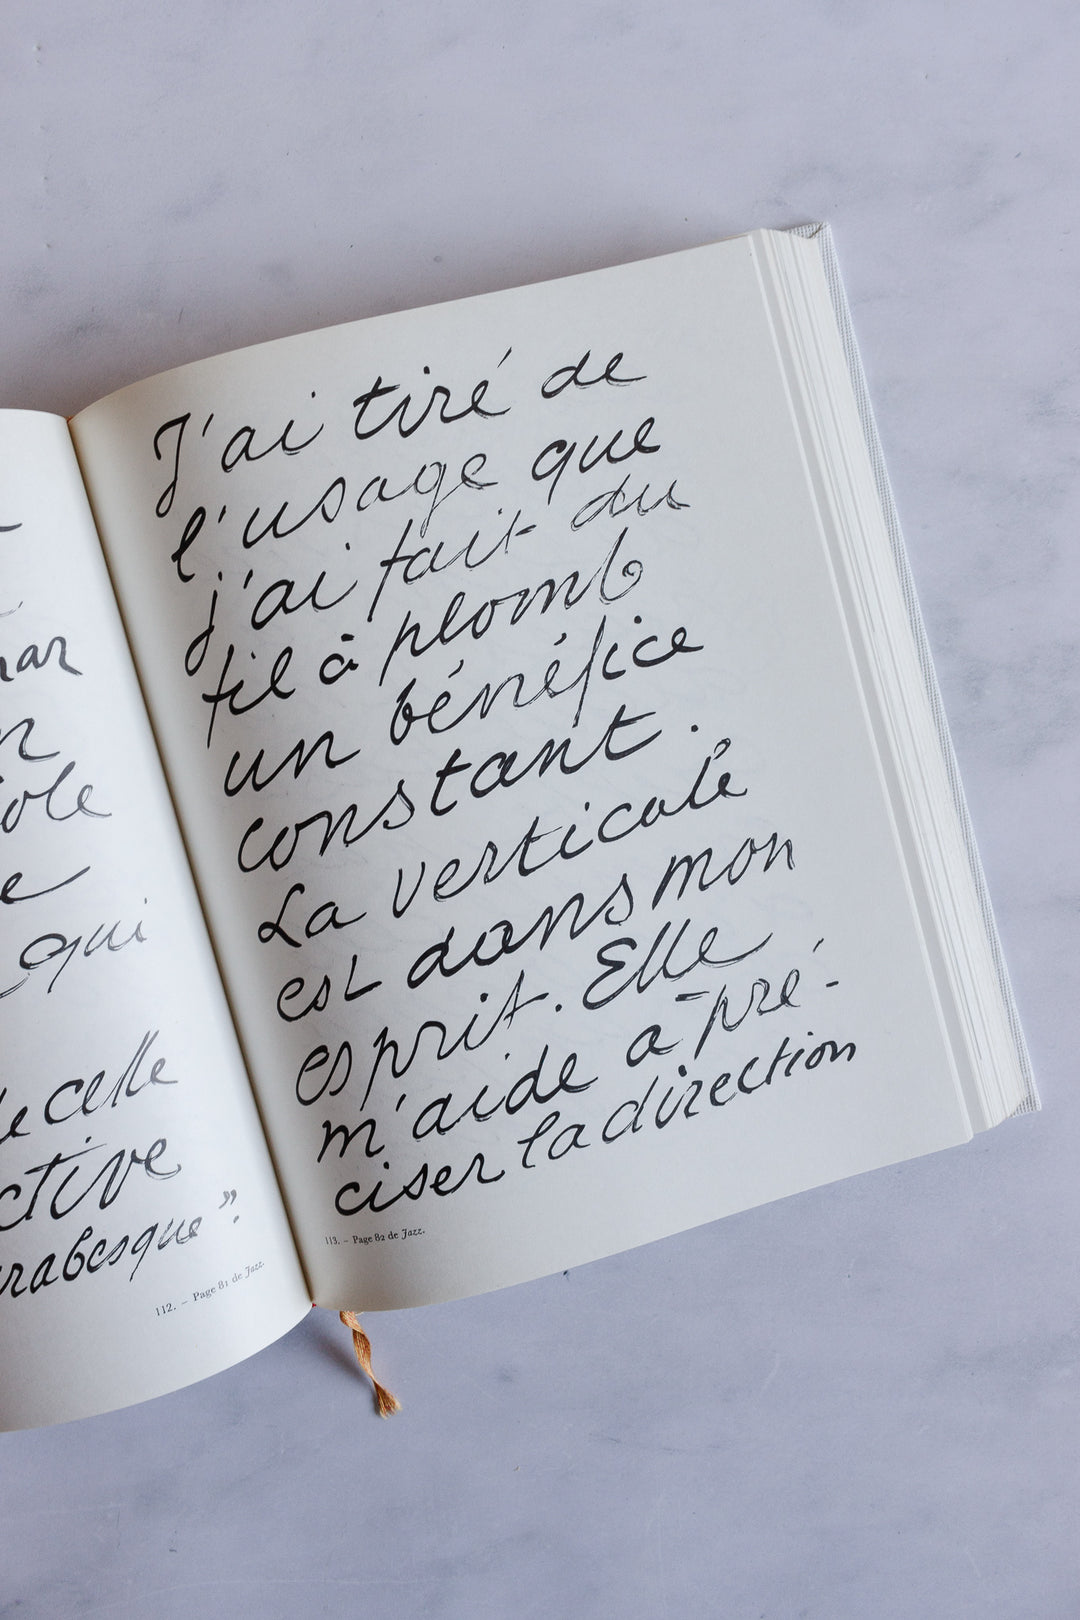 qui
celle
112. – Page 81 de Jazz.
J'ai tiré de
l'usage que
j'ai fait du
fil à plomb
un bénéfice
constant.
La verticale
est dans mon
esprit. Elle
m'aide à pré-
ciser la direction
113. – Page 82 de Jazz.